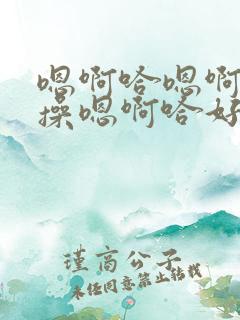 嗯啊哈嗯啊
操嗯啊哈好
瑾高公子
未经同意禁止转载